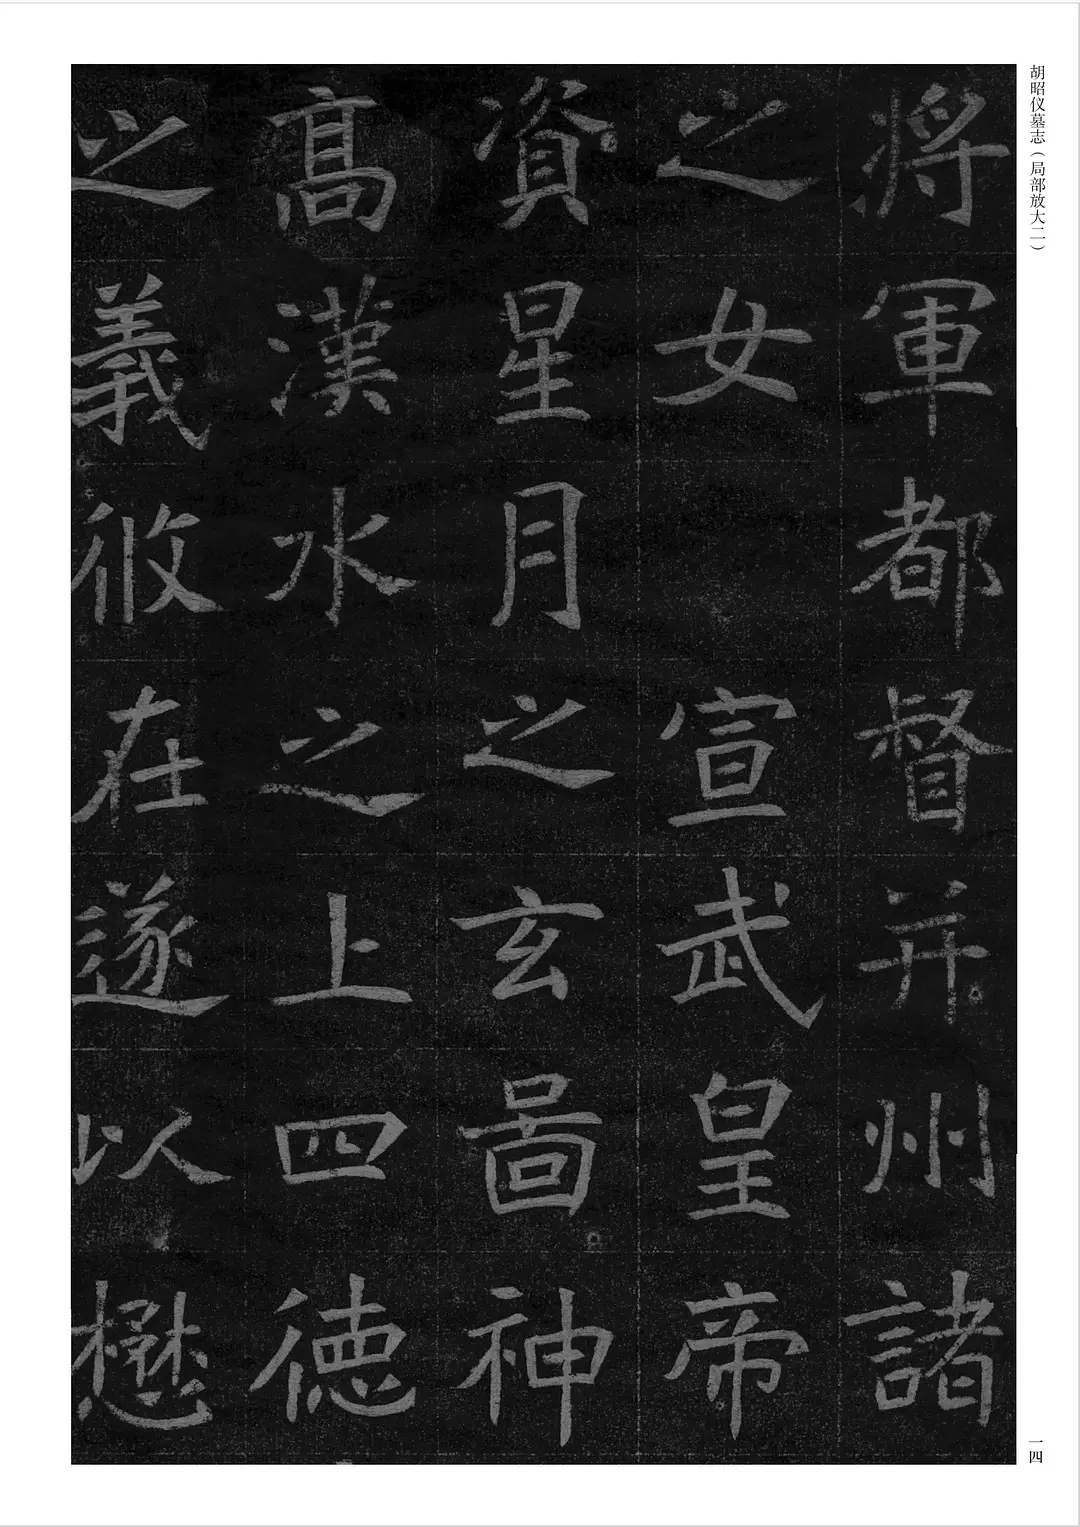 胡昭仪墓志（局部放大二）
将軍都督并州諸
之女　宣武皇帝
資星月之玄啚神
髙漢水之上四徳
之義攸在遂以懋
一四